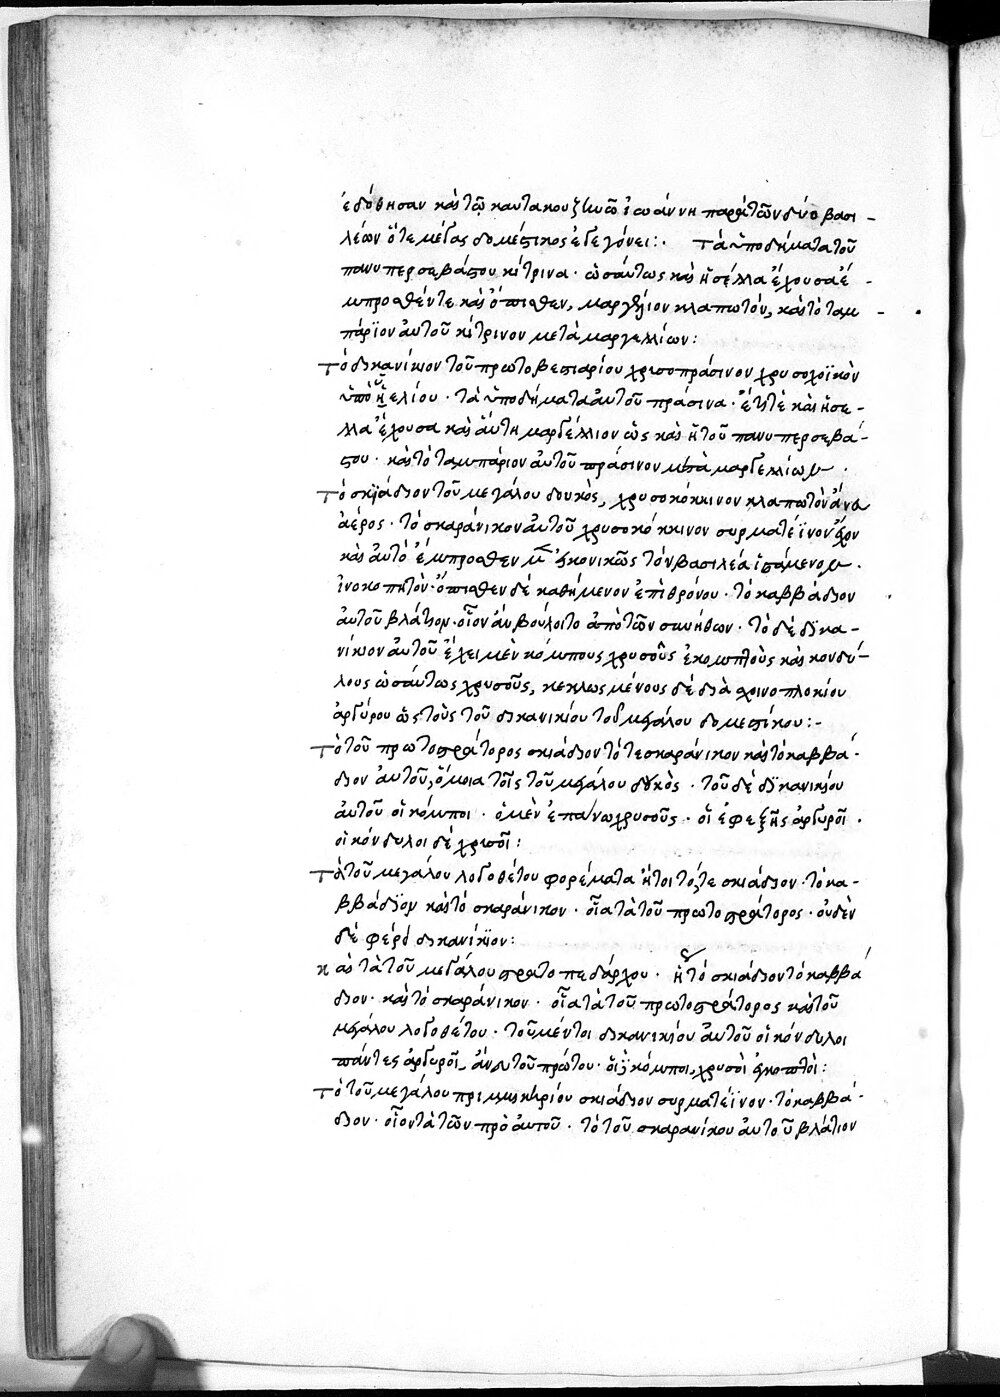 ἐδόθησαν καὶ τῷ καντακουζηνῷ ἰωάννη παρὰ τῶν δύο βασι-
λέων ὅτε μέγας δομέστικος ἐγεγόνει:. Τὰ ὑποδήματα τοῦ
πανυπερσεβάστου κίτρινα· ὡσαύτως καὶ ἡ σέλλα ἔχουσα ἔ-
μπροσθέν τε καὶ ὄπισθεν, μαργέλλιον κλαπωτόν, καὶ τὸ ταμ-
πάρϊον αὐτοῦ κίτρινον μετὰ μαργελλίων:
Τὸ δικανίκιον τοῦ πρωτοβεστιαρίου χρυσοπράσινον χρυσοχοϊκὸν
ὑπὸ ἡελίου· τὰ ὑποδήματα αὐτοῦ πράσινα· ἔτι τὲ καὶ ἡ σέ-
λλα ἔχουσα καὶ αὕτη μαργέλλιον ὡς καὶ ἡ τοῦ πανυπερσεβά-
στου· καὶ τὸ ταμπάριον αὐτοῦ πράσινον μετὰ μαργελλίων·
Τὸ σκϊάδιον τοῦ μεγάλου δουκὸς, χρυσοκόκκινον κλαπωτὸν ἄνευ
ἀέρος· τὸ σκαράνικον αὐτοῦ χρυσοκόκκινον συρματέϊνον ἔχον
καὶ αὐτὸ ἔμπροσθεν μὲν εἰκονικῶς τὸν βασιλέα ἱστάμενον·
ἰνοκοπητόν· ὄπισθεν δὲ καθήμενον ἐπὶ θρόνου· τὸ καββάδιον
αὐτοῦ βλάτιον· οἷον ἂν βούλοιτο ἀπὸ τῶν συνήθων· τὸ δὲ δικα-
νίκιον αὐτοῦ ἔχει μὲν κόμπους χρυσοῦς ἐκομπτοὺς καὶ κονδύ-
λους ὡσαύτως χρυσοῦς, κεκλωσμένους δὲ διὰ χοινοπλοκίου
ἀργύρου ὡς τοὺς τοῦ δικανικίου τοῦ μεγάλου δομεστίκου:-
Τὸ τοῦ πρωτοστράτορος σκιάδιον τό τε σκαράνικον καὶ τὸ καββά-
διον αὐτοῦ, ὅμοια τοῖς τοῦ μεγάλου δουκὸς· τοῦ δὲ δικανικίου
αὐτοῦ οἱ κόμποι· ὁ μὲν ἐπάνω χρυσοῦς· οἱ ἐφεξῆς ἀργυροῖ·
οἱ κόνδυλοι δὲ χρυσοῖ:
Τὰ τοῦ μεγάλου λογοθέτου φορέματα ἤτοι τό, τε σκιάδιον· τὸ κα-
ββάδϊον καὶ τὸ σκαράνικον· οἷα τὰ τοῦ πρωτοστράτορος· οὐδὲν
δὲ φέρει δικανίκϊον:
καὶ τὰ τοῦ μεγάλου στρατοπεδάρχου· ἤγουν τὸ σκιάδιον τὸ καββά
διον· καὶ τὸ σκαράνικον· οἷα τὰ τοῦ πρωτοστράτορος καὶ τοῦ
μεγάλου λογοθέτου· τοῦ μέντοι δικανικίου αὐτοῦ οἱ κόνδυλοι
πάντες ἀργυροῖ, ἄνευ τοῦ πρώτου· οἱ κόμποι, χρυσοῖ ἐγκοπτοὶ:
Τὸ τοῦ μεγάλου πριμμικηρίου σκιάδιον συρματέϊνον· τὸ καββά-
διον· οἷον τὰ τῶν πρὸ αὐτοῦ· τὸ τοῦ σκαρανίκου αὐτοῦ βλάτιον